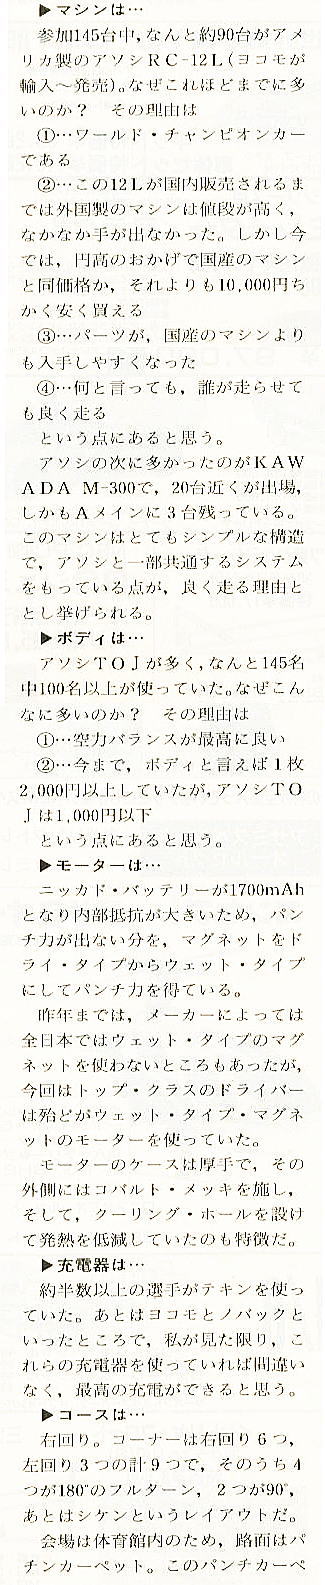 ▶マシンは…
参加145台中，なんと約90台がアメ
リカ製のアソシRC-12L(ヨコモが
輸入～発売)。なぜこれほどまでに多
いのか？　その理由は
①…ワールド・チャンピオンカー
である
②…この12Lが国内販売されるま
では外国製のマシンは値段が高く，
なかなか手が出なかった。しかし今
では，円高のおかげで国産のマシン
と同価格か，それよりも10,000円ち
かく安く買える
③…パーツが，国産のマシンより
も入手しやすくなった
④…何と言っても，誰が走らせて
も良く走る
という点にあると思う。
アソシの次に多かったのがKAW
ADA M-300で，20台近くが出場，
しかもAメインに3台残っている。
このマシンはとてもシンプルな構造
で，アソシと一部共通するシステム
をもっている点が，良く走る理由と
とし挙げられる。
▶ボディは…
アソシTOJが多く，なんと145名
中100名以上が使っていた。なぜこん
なに多いのか？　その理由は
①…空力バランスが最高に良い
②…今まで，ボディと言えば1枚
2,000円以上していたが，アソシTO
Jは1,000円以下
という点にあると思う。
▶モーターは…
ニッカド・バッテリーが1700mAh
となり内部抵抗が大きいため，パン
チ力が出ない分を，マグネットをド
ライ・タイプからウェット・タイプ
にしてパンチ力を得ている。
昨年までは，メーカーによっては
全日本ではウェット・タイプのマグ
ネットを使わないところもあったが，
今回はトップ・クラスのドライバー
は殆どがウェット・タイプ・マグネ
ットのモーターを使っていた。
モーターのケースは厚手で，その
外側にはコバルト・メッキを施し，
そして，クーリング・ホールを設け
て発熱を低減していたのも特徴だ。
▶充電器は…
約半数以上の選手がテキンを使っ
ていた。あとはヨコモとノバックと
いったところで，私が見た限り，こ
れらの充電器を使っていれば間違い
なく，最高の充電ができると思う。
▶コースは…
右回り。コーナーは右回り6つ，
左回り3つの計9つで，そのうち4
つが180°のフルターン，2つが90°，
あとはシケンというレイアウトだ。
会場は体育館内のため，路面はパ
チンカーペット。このパンチカーペ